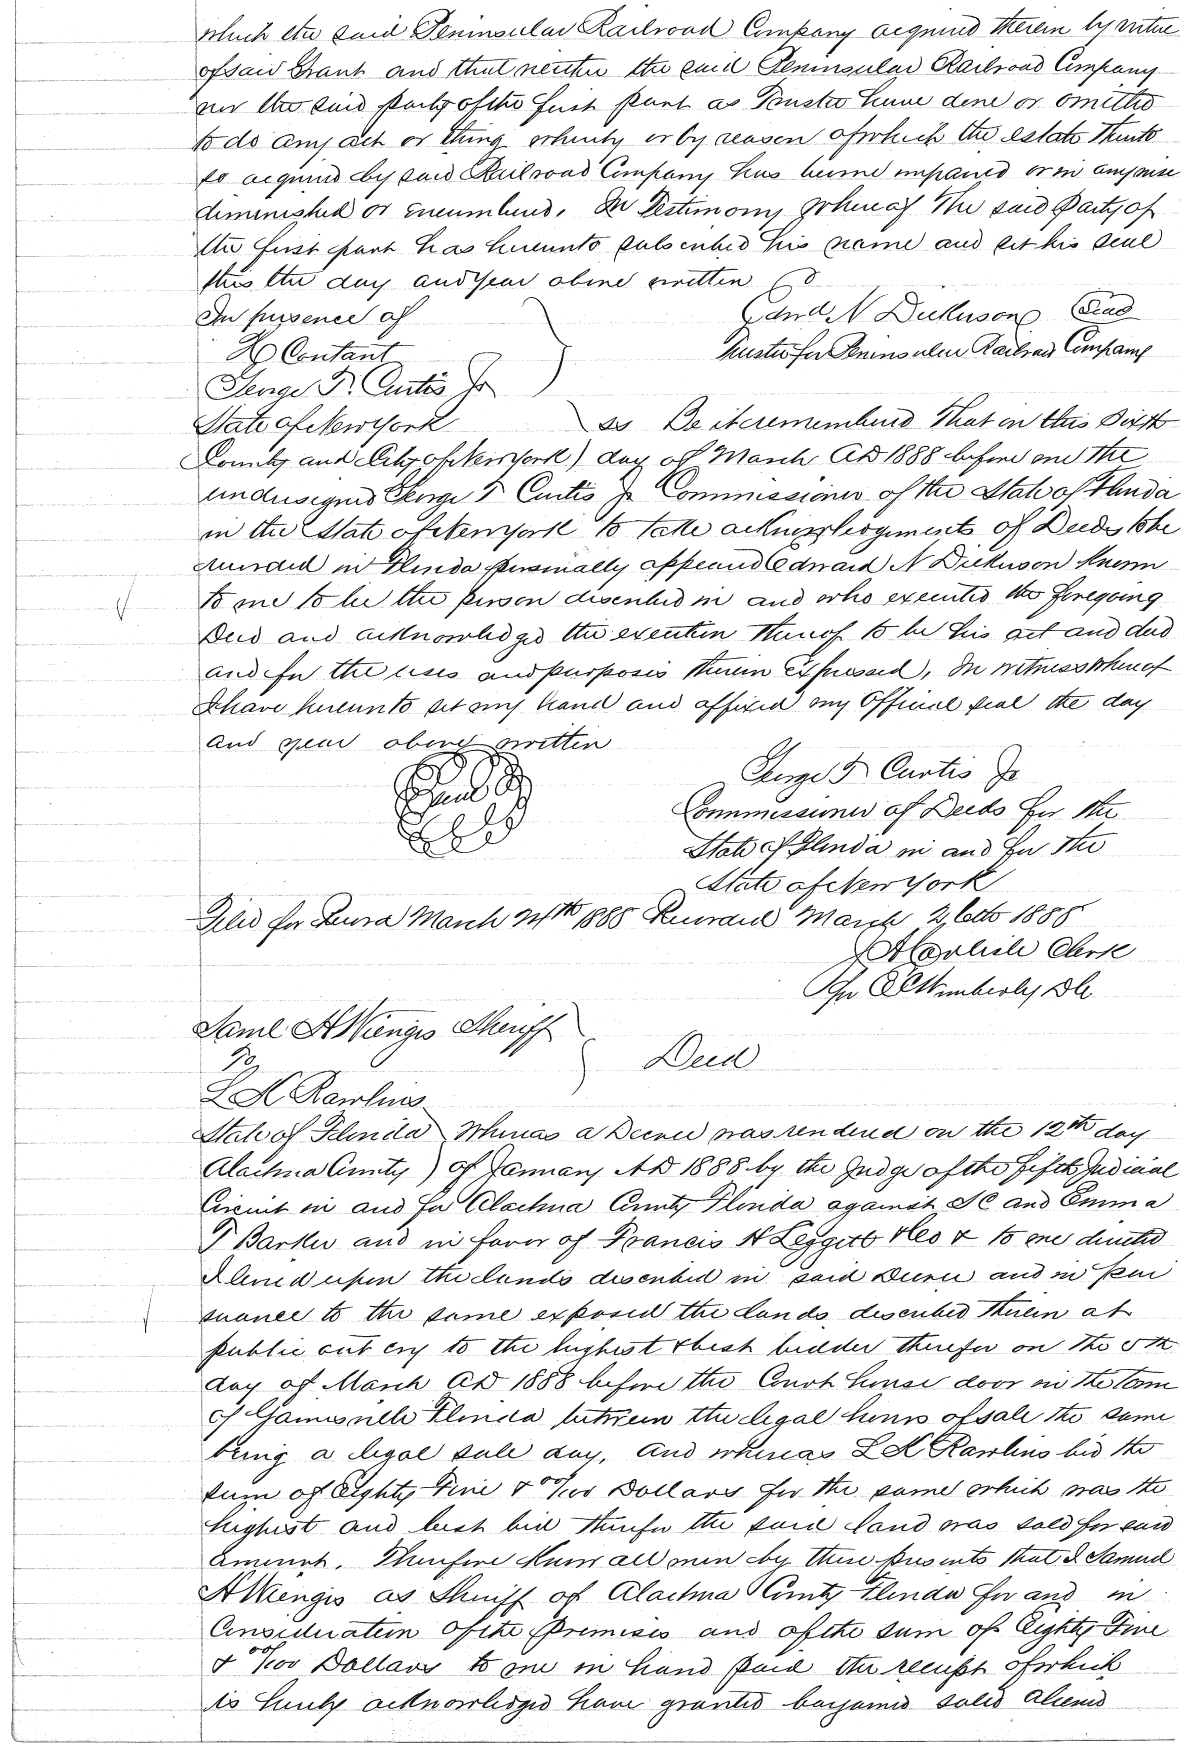 which the said Peninsular Railroad Company acquired therein by virtue
of said Grant and that neither the said Peninsular Railroad Company
nor the said Party of the first part as Trustee have done or omitted
to do any act or thing whereby or by reason of which the estate thereto
so acquired by said Railroad Company has become impaired or in anywise
diminished or encumbered. In Testimony Whereof The said Party of
the first part has hereunto subscribed his name and set his seal
this the day and year above written
In presence of Edwd N Dickerson Seal
H Contant Trustee for Peninsular Railroad Company
George F. Curtis Jr
State of New York ss Be it remembered That on this Sixth
County and City of New York) day of March AD 1888 before me the
undersigned George F Curtis Jr Commissioner of the State of Florida
in the State of New York to take acknowledgments of Deeds to be
recorded in Florida personally appeared Edward N Dickerson known
to me to be the person described in and who executed the foregoing
Deed and acknowledged the execution thereof to be his act and deed
and for the uses and purposes therein expressed. In witness whereof
I have hereunto set my hand and affixed my Official seal the day
and year above written
George F Curtis Jr
Seal
Commissioner of Deeds for the
State of Florida in and for the
State of New York
Filed for Record March 24th 1888 Recorded March 26th 1888
Clerk
Per C Wimberly DC
Saml H Wienges Sheriff
To Deed
L K Rawlins
State of Florida Whereas a Decree was rendered on the 12th day
Alachua County ) of January AD 1888 by the Judge of the fifth Judicial
Circuit in and for Alachua County Florida against S C and Emma
T Barker and in favor of Francis H Leggett & Co & to me directed
I levied upon the lands described in said Decree and in pur
suance to the same exposed the lands described therein at
public out cry to the highest & best bidder therefor on the 5th
day of March AD 1888 before the Court house door in the Town
of Gainesville Florida between the legal hours of sale the same
being a legal sale day, and whereas L K Rawlins bid the
sum of Eighty Five & 00/100 Dollars for the same which was the
highest and best bid therefor the said land was sold for said
amount. Therefore Know all men by these presents that I Samuel
H Wienges as Sheriff of Alachua County Florida for and in
Consideration of the Premises and of the sum of Eighty Five
& 00/100 Dollars to me in hand paid the receipt of which
is hereby acknowledged have granted bargained sold aliened